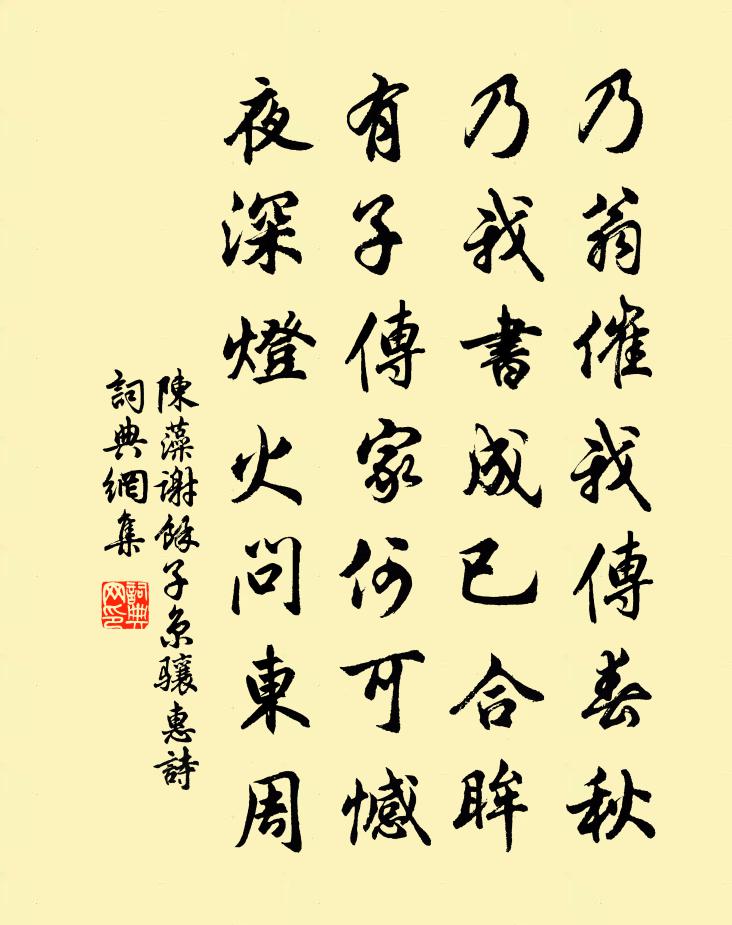 乃翁催我傳春秋
乃我書成已合眸
有子傳家何可憾
夜深燈火問東周
陳藻謝餘子京驤惠詩
詞典網集
詞典网印